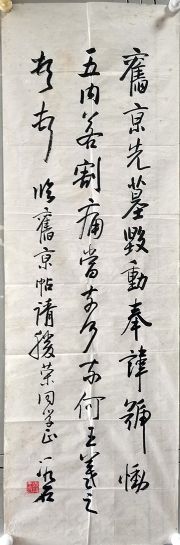 舊京先墓毀動奉諱號慟
五内若割痛當奈何奈何王羲之
頓首 臨舊京帖請駿榮同學正